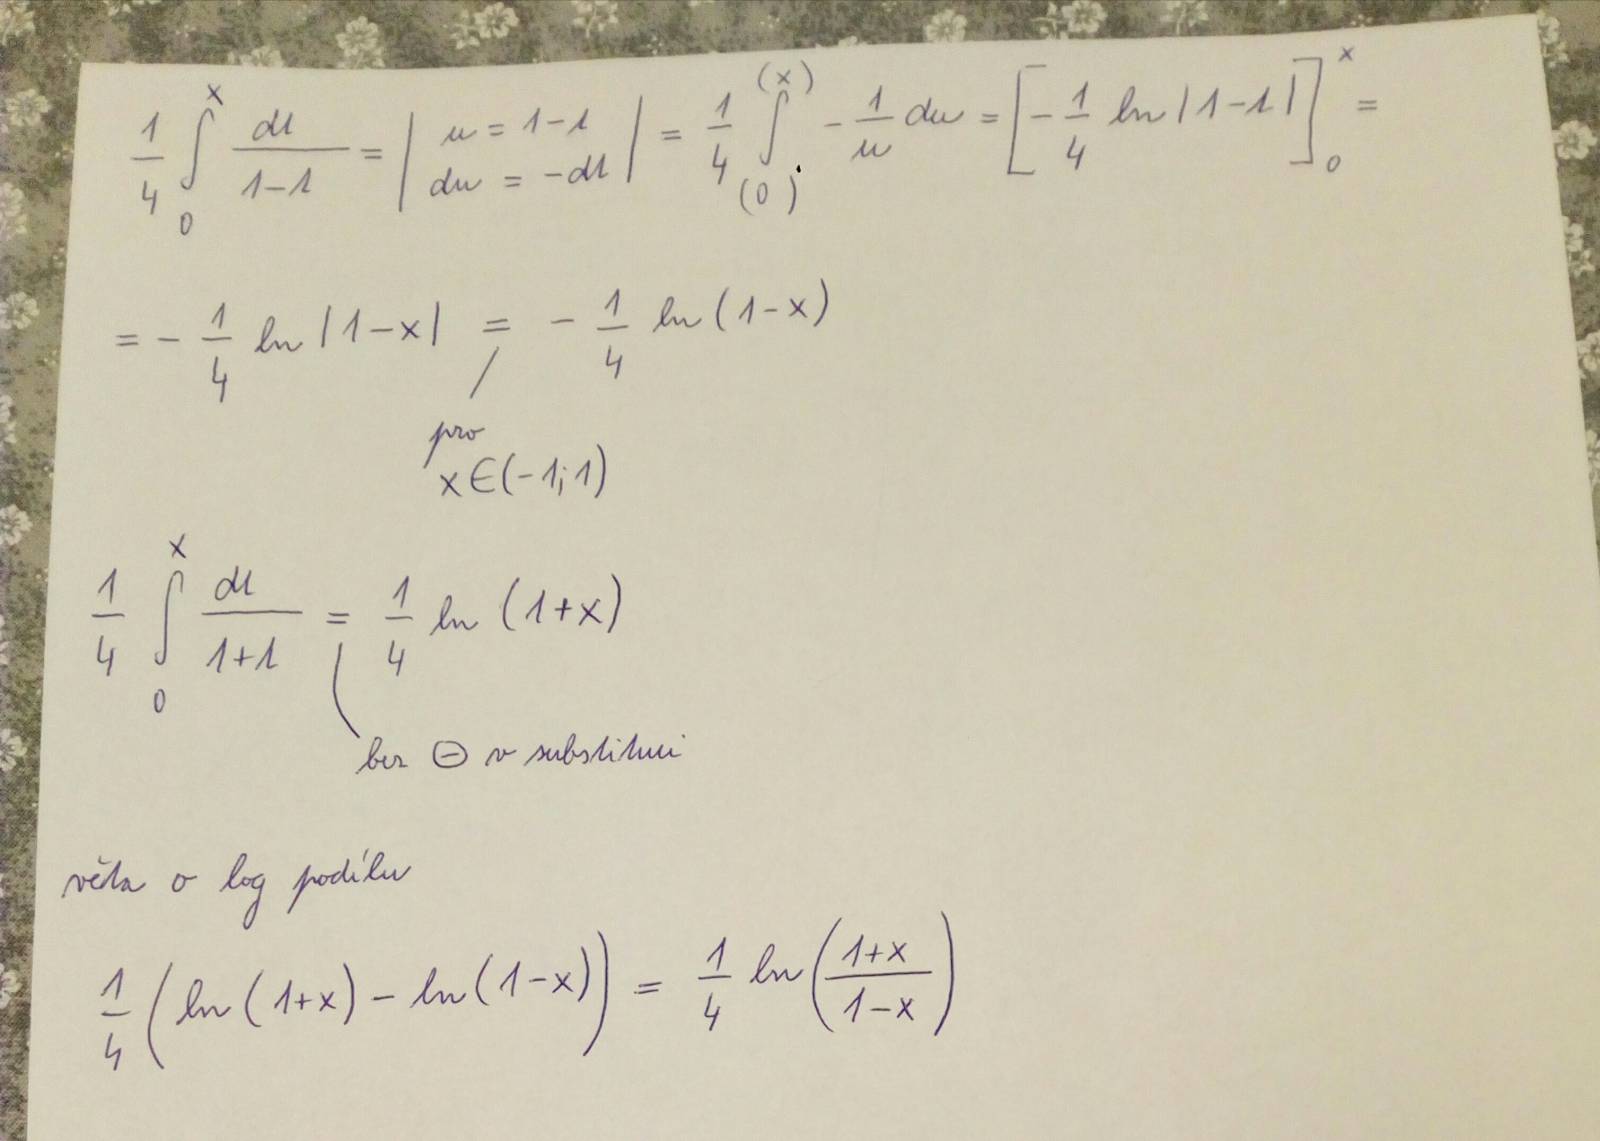 1/4 ∫₀ˣ dt/(1-t) = | u = 1-t du = -dt | = 1/4 ∫₍₀₎⁽ˣ⁾ -1/u du = [-1/4 ln|1-t|]₀ˣ =
= -1/4 ln|1-x| = -1/4 ln(1-x)
pro
x∈(-1;1)
1/4 ∫₀ˣ dt/(1+t) = 1/4 ln(1+x)
bez ⊖ v substituci
věta o log podílu
1/4 (ln(1+x) - ln(1-x)) = 1/4 ln((1+x)/(1-x))